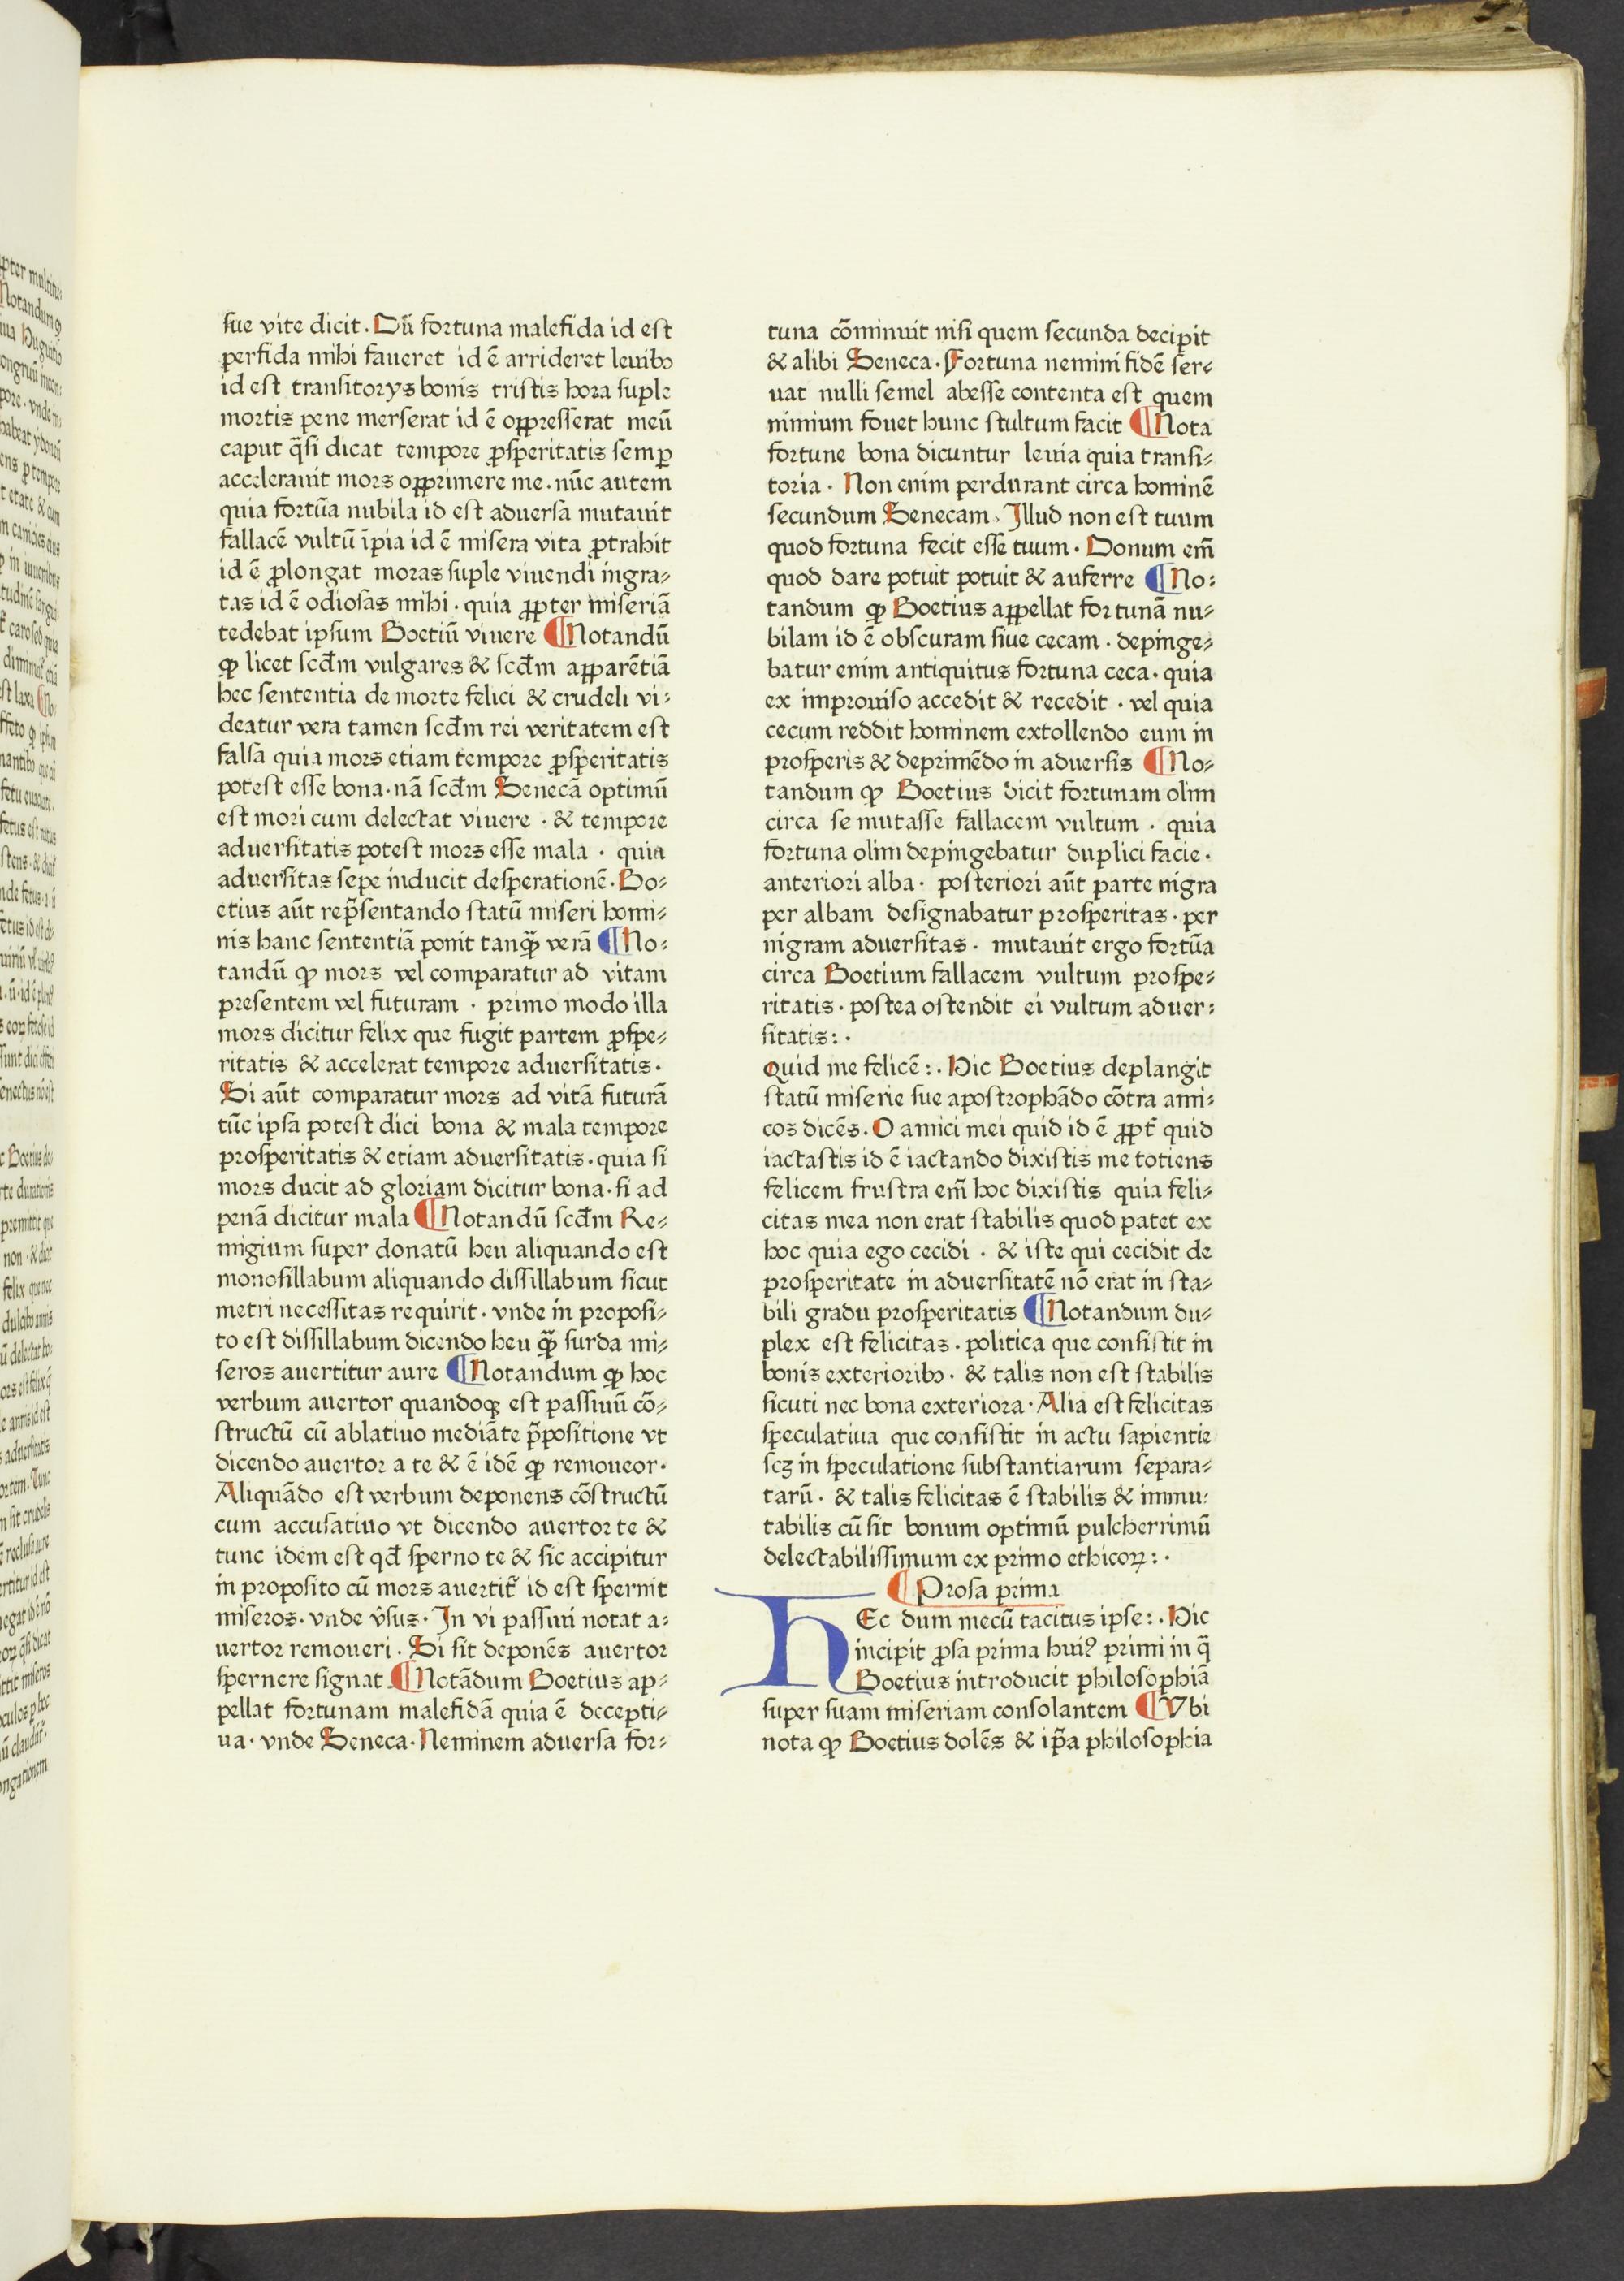 sue vite dicit. Dū fortuna malefida id est
perfida mihi faueret id ē arrideret leuibꝯ
id est transitorys bonis tristis hora suple
mortis pene merserat id ē oppresserat meū
caput q̄si dicat tempore ꝓsperitatis semꝑ
accelerauit mors opprimere me. nūc autem
quia fortūa nubila id est aduersa mutauit
fallacē vultū īpia id ē misera vita ꝓtrahit
id ē ꝓlongat moras suple viuendi ingra⸗
tas id ē odiosas mihi. quia ꝓpter miseriā
tedebat ipsum Boetiū viuere ¶Notandū
ꝙ licet scd̄m vulgares & scd̄m apparētiā
hec sententia de morte felici & crudeli vi⸗
deatur vera tamen scd̄m rei veritatem est
falsa quia mors etiam tempore ꝓsperitatis
potest esse bona. nā scd̄m Senecā optimū
est mori cum delectat viuere . & tempore
aduersitatis potest mors esse mala . quia
aduersitas sepe inducit desperationē. Bo⸗
etius aūt rep̄sentando statū miseri homi⸗
nis hanc sententiā ponit tanq̄ꝫ verā ¶No⸗
tandū ꝙ mors vel comparatur ad vitam
presentem vel futuram . primo modo illa
mors dicitur felix que fugit partem ꝓspe⸗
ritatis & accelerat tempore aduersitatis.
Si aūt comparatur mors ad vitā futurā
tūc ipsa potest dici bona & mala tempore
prosperitatis & etiam aduersitatis. quia si
mors ducit ad gloriam dicitur bona. si ad
penā dicitur mala ¶Notandū scd̄m Re⸗
migium super donatū heu aliquando est
monosillabum aliquando dissillabum sicut
metri necessitas requirit. vnde in proposi⸗
to est dissillabum dicendo heu q̄ꝫ surda mi⸗
seros auertitur aure ¶Notandum ꝙ hoc
verbum auertor quandoqꝫ est passiuū cō⸗
structū cū ablatiuo mediāte p̄positione vt
dicendo auertor a te & ē idē ꝙ remoueor.
Aliquādo est verbum deponens cōstructū
cum accusatiuo vt dicendo auertor te &
tunc idem est qd̄ sperno te & sic accipitur
in proposito cū mors auertit᷑ id est spernit
miseros. vnde v̄sus. In vi passiui notat a⸗
uertor remoueri. Si sit deponēs auertor
spernere signat. ¶Notādum Boetius ap⸗
pellat fortunam malefidā quia ē decepti⸗
ua. vnde Seneca. Neminem aduersa for⸗
tuna cōminuit nisi quem secunda decipit
& alibi Seneca. Fortuna nemini fidē ser⸗
uat nulli semel abesse contenta est quem
nimium fouet hunc stultum facit ¶Nota
fortune bona dicuntur leuia quia transi⸗
toria. Non enim perdurant circa hominē
secundum Senecam. Illud non est tuum
quod fortuna fecit esse tuum. Donum em̄
quod dare potuit potuit & auferre ¶No⸗
tandum ꝙ Boetius appellat fortunā nu⸗
bilam id ē obscuram siue cecam. depinge⸗
batur enim antiquitus fortuna ceca. quia
ex improuiso accedit & recedit . vel quia
cecum reddit hominem extollendo eum in
prosperis & deprimēdo in aduersis ¶No⸗
tandum ꝙ Boetius dicit fortunam olim
circa se mutasse fallacem vultum . quia
fortuna olim depingebatur duplici facie.
anteriori alba. posteriori aūt parte nigra
per albam designabatur prosperitas. per
nigram aduersitas. mutauit ergo fortūa
circa Boetium fallacem vultum prospe⸗
ritatis. postea ostendit ei vultum aduer⸗
sitatis:.
Quid me felicē:. Hic Boetius deplangit
statū miserie sue apostrophādo cōtra ami⸗
cos dicēs. O amici mei quid id ē ꝓpt᷑ quid
iactastis id ē iactando dixistis me totiens
felicem frustra em̄ hoc dixistis quia feli⸗
citas mea non erat stabilis quod patet ex
hoc quia ego cecidi . & iste qui cecidit de
prosperitate in aduersitatē nō erat in sta⸗
bili gradu prosperitatis ¶Notandum du⸗
plex est felicitas. politica que consistit in
bonis exterioribꝯ. & talis non est stabilis
sicuti nec bona exteriora. Alia est felicitas
speculatiua que consistit in actu sapientie
scꝫ in speculatione substantiarum separa⸗
tarū. & talis felicitas ē stabilis & immu⸗
tabilis cū sit bonum optimū pulcherrimū
delectabilissimum ex primo ethicoꝝ:.
¶Prosa prima
HEc dum mecū tacitus ipse:. Hic
incipit ꝓsa prima huiꝰ primi in q̄
Boetius introducit philosophiā
super suam miseriam consolantem ¶Vbi
nota ꝙ Boetius dolēs & ip̄a philosophia